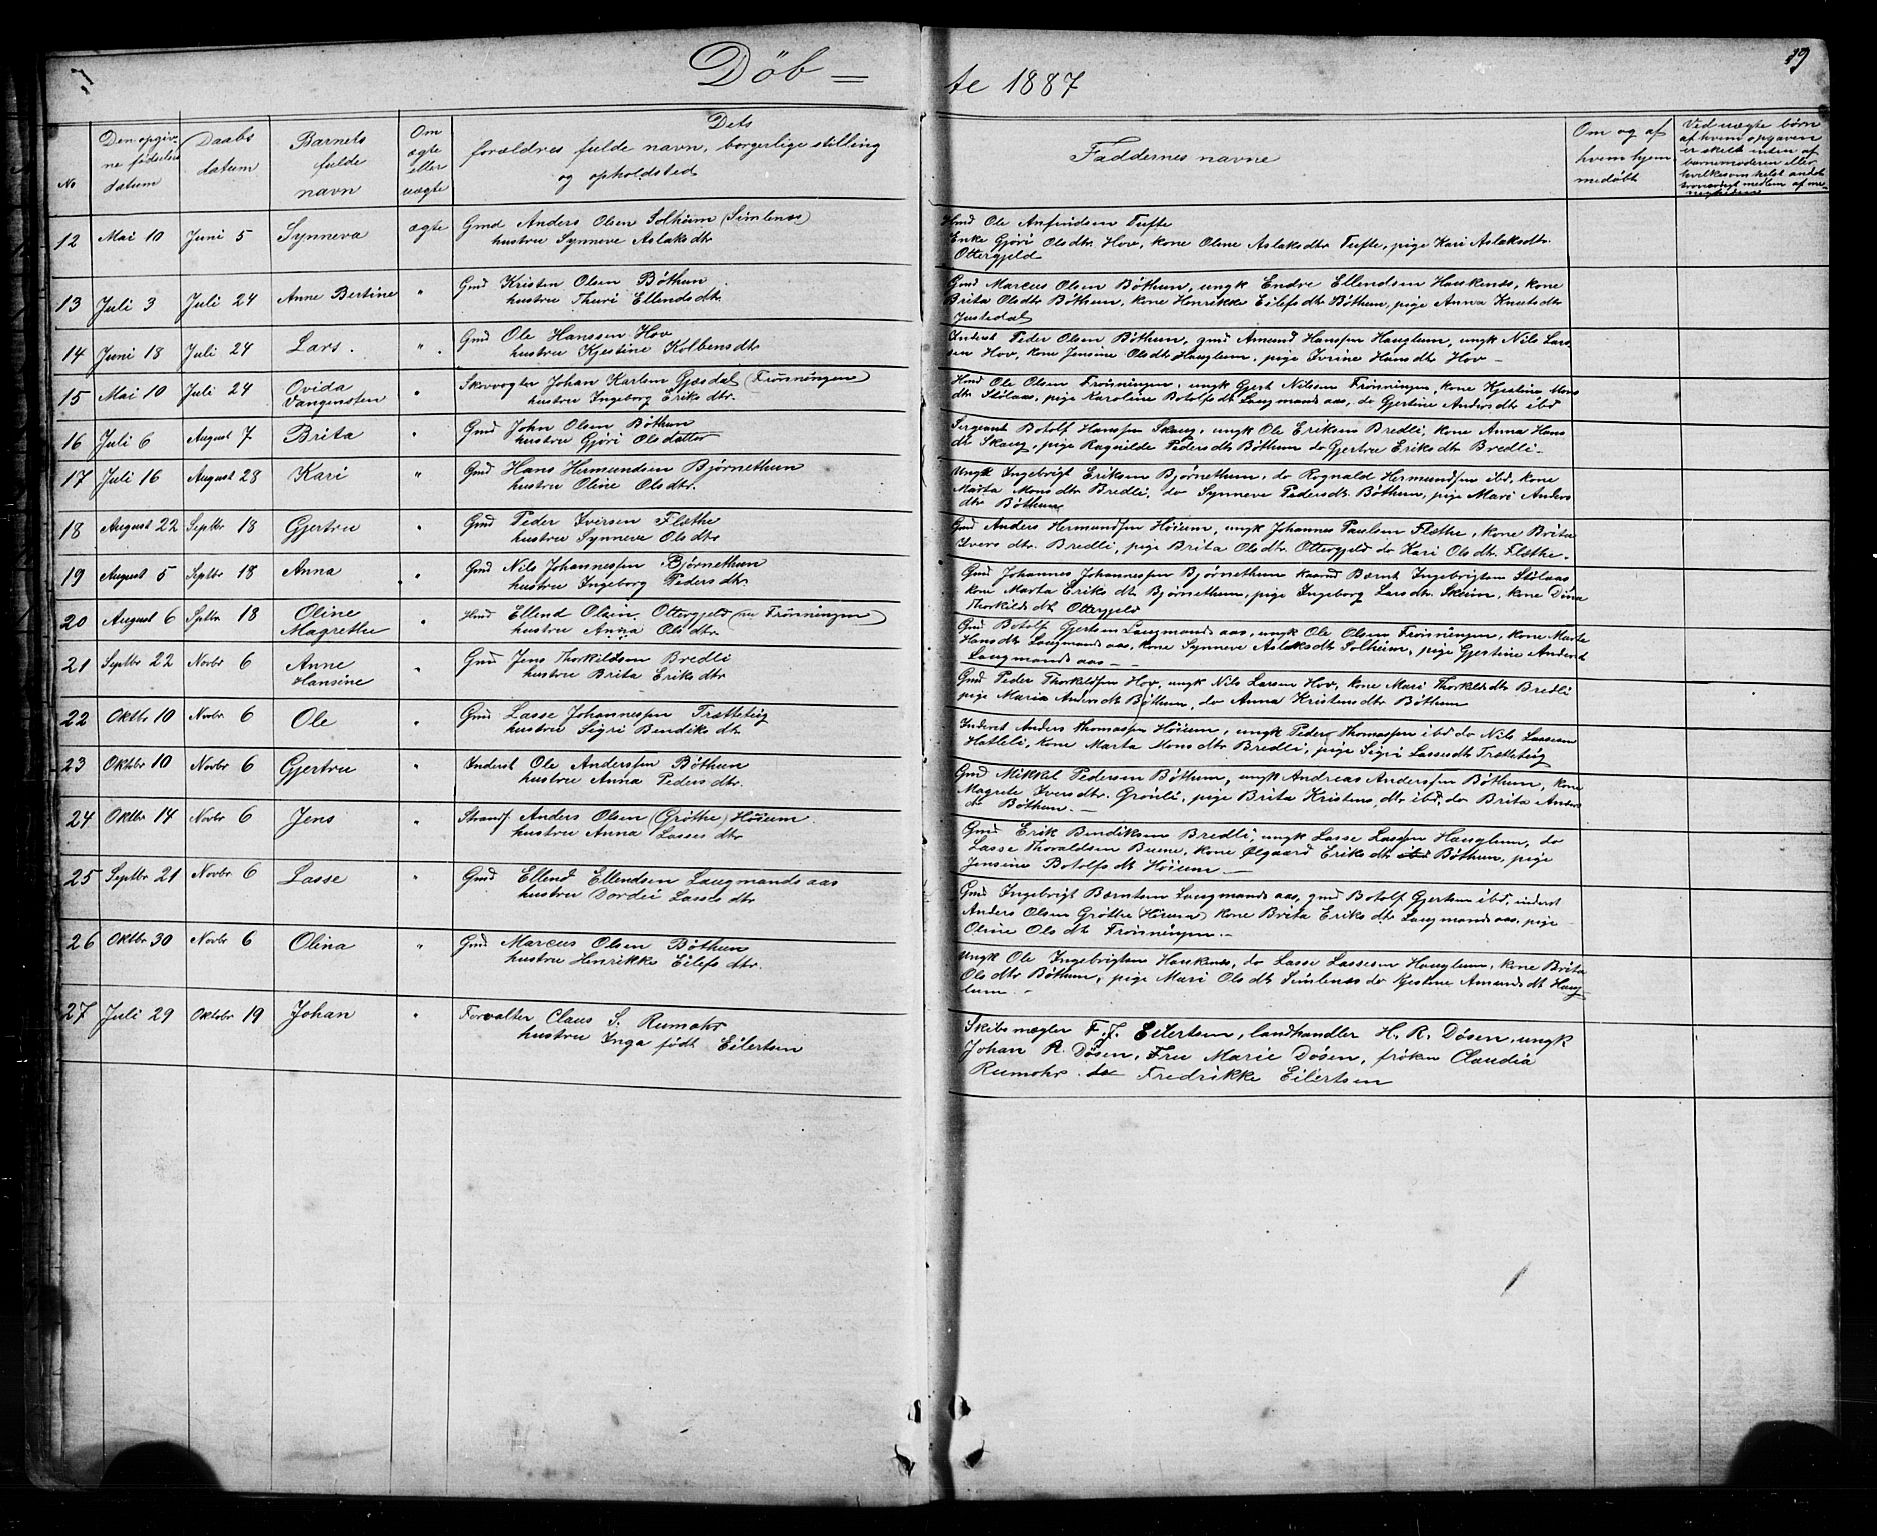 Døb = te 1887
19
No
Den opgivne fødsels datum
Daabs datum
Barnets fulde navn
Om ægte eller uægte
Dets forældres fulde navn, borgerlige stilling og opholdsted
Faddernes navne
Om og af hvem hjemmedøbt
Ved uægte børn af hvem opgaven er skeet inten af barnemoderen eller hvilkesomhelst andet troværdigt medlem af menigheden
12 Mai 10 Juni 5 Synneva ægte Gmd Anders Olsen Solheim (Simlenæs)
hustru Synneve Aslaksdtr
Hmd Ole Anfindsen Tufte
Enke Gjøri Olsdtr Hov, kone Oline Aslaksdtr Tufte, pige Kari Aslaksdtr.
Ottergjeld
13 Juli 3 Juli 24 Anne Bertine " Gmd Kristen Olsen Bøthun
hustru Thuri Ellendsdtr.
Gmd Marcus Olsen Bøthun, ungk Endre Ellendsen Haukenæs, kone
Brita Olsdtr Bøthun, kone Henrikke Eilefsdtr Bøthum, pige Anna Knutsdtr
Justedal
14 Juni 18 Juli 24 Lars. " Gmd Ole Hanssen Hov
hustru Kjestine Kolbensdtr
Inderst Peder Olsen Bøthun, gmd Amund Hanssen Hauglum, ungk Nils Lars
sen Hov, kone Jensine Olsdt Hauglum, pige Ivrine Hansdtr Hov -
15 Mai 10 Juli 24 Ovida Vangensten " Skovvogter Johan Karlsen Gjesdal (Frønningen)
hustru Ingeborg Eriksdtr.
Hmd Ole Olsen Frønningen, ungk Gjert Nilsen Frønningen, kone Kjestine Mons
dtr Stølaas, pige Karoline Botolfsdt Laugmandsaas, do Gjertine Andersdtr ibd
16 Juli 6 August 7 Brita " Gmd John Olsen Bøthun
hustru Gjøri Olsdatter
Sergeant Botolf Hanssen Skaug, ungk Ole Eriksen Bredli, kone Anna Hans
dtr Skaug, pige Ragnilde Pedersdtr Bøthum do Gjertru Eriksdtr Bredli -
17 Juli 16 August 28 Kari " Gmd Hans Hermundsen Bjørnethun
hustru Oline Olsdtr.
Ungk Ingebrigt Eriksen Bjørnethum, do Rognald Hermundsen ibd, kone
Marta Monsdtr Bredli, do Synneve Pedersdt. Bøthum, pige Mari Anders
dtr Bøthum
18 August 22 Septbr 18 Gjertru " Gmd Peder Iversen Flæthe
hustru Synneve Olsdtr
Gmd Anders Hermundsen Høium, ungk Johannes Paulsen Flæthe, kone Brita
Iversdtr. Bredli, pige Brita Olsdtr. Ottergjeld do Kari Olsdtr. Flæthe.
19 August 5 Septbr 18 Anna " Gmd Nils Johannessen Bjørnethun
hustru Ingeborg Pedersdtr.
Gmd Johannes Johannessen Bjørnethum kaarmd Bærnt Ingebrigtsen Stølaas
kone Marta Eriksdtr Bjørnethum, pige Ingeborg Larsdtr. Skeim, kone Dina
Thorkildsdt Ottergjeld
20 August 6 Sptbr 18 Oline Magrethe " Hmd Ellend Olsen Ottergjeld (nu Frønningen)
hustru Anna Olsdtr
Gmd Botolf Gjertsen Laugmandsaas, ungk Ole Olsen Frønningen, kone Marte
Hansdt Laugmandsaas, kone Synneve Aslaksdt Solheim, pige Gjertine Andersdt
Laugmandsaas -
21 Septbr 22 Novbr 6 Anne Hansine " Gmd Jens Thorkildsen Bredli
hustru Brita Eriksdtr
Gmd Peder Thorkildsen Hov, ungk Nils Larsen Hov, kone Mari Thorkildsdtr Bredli
pige Maria Andersdt Bøthum, do Anna Kristensdtr Bøthum
22 Oktbr 10 Novbr 6 Ole " Gmd Lasse Johannessen Trætteteig
hustru Sigri Bendiksdtr
Inderst Anders Thomassen Høium, ungk Peder Thomassen ibd do Nils Lassesen
Hatleli, kone Marta Monsdtr Bredli, pige Sigri Lassesdtr Trætteteig
23 Oktbr 10 Novbr 6 Gjertru " Inderst Ole Anderssen Bøthun
hustru Anna Pedersdtr.
Gmd Mikkel Pedersen Bøthum, ungk Andreas Anderssen Bøthum, kone
Magrete Iversdtr. Grønli, pige Brita Kristensdtr ibd, do Brita Anders
dtr Bøthum. -
24 Oktbr 14 Novbr 6 Jens " Strands. Anders Olsen (Grøthe) Høium.
hustru Anna Lassesdtr
Gmd Erik Bendiksen Bredli, ungk Lasse Lassen Hauglum, do
Lasse Thoraldsen Buene, kone Olgaard Eriksdtr ibd Bøthum, pige
Jensine Botolfsdt Høium -
25 Septbr 21 Novbr 6 Lasse " Gmd Ellend Ellendsen Laugmandsaas
hustru Dordei Lassesdtr
Gmd Ingebrigt Bærntsen Laugmandsaas, gmd Botolf Gjertsen ibd, inderst
Anders Olsen Grøthe (Høium) kone Brita Eriksdtr Laugmandsaas, pige
Oline Olsdt Frønningen. -
26 Oktbr 30 Novbr 6 Olina " Gmd Marcus Olsen Bøthun
hustru Henrikke Eilefsdtr.
Ungk Ole Ingebrigtsen Haukenæs, do Lasse Lassesen Hauglum, kone Brita
Olsdtr Bøthum, pige Mari Olsdt Simlenæs do Gjestine Amundsdt Haug
lum. -
27 Juli 29 Oktobr 19 Johan " Forvalter Claus S. Rumohr
hustru Inga født Eilertsen
Skibsmægler F. J. Eilertsen, landhandler H. R. Døsen, ungk
Johan R. Døsen, Fru Marie Døsen, frøken Claudia
Rumohr. do Fredrikke Eilertsen